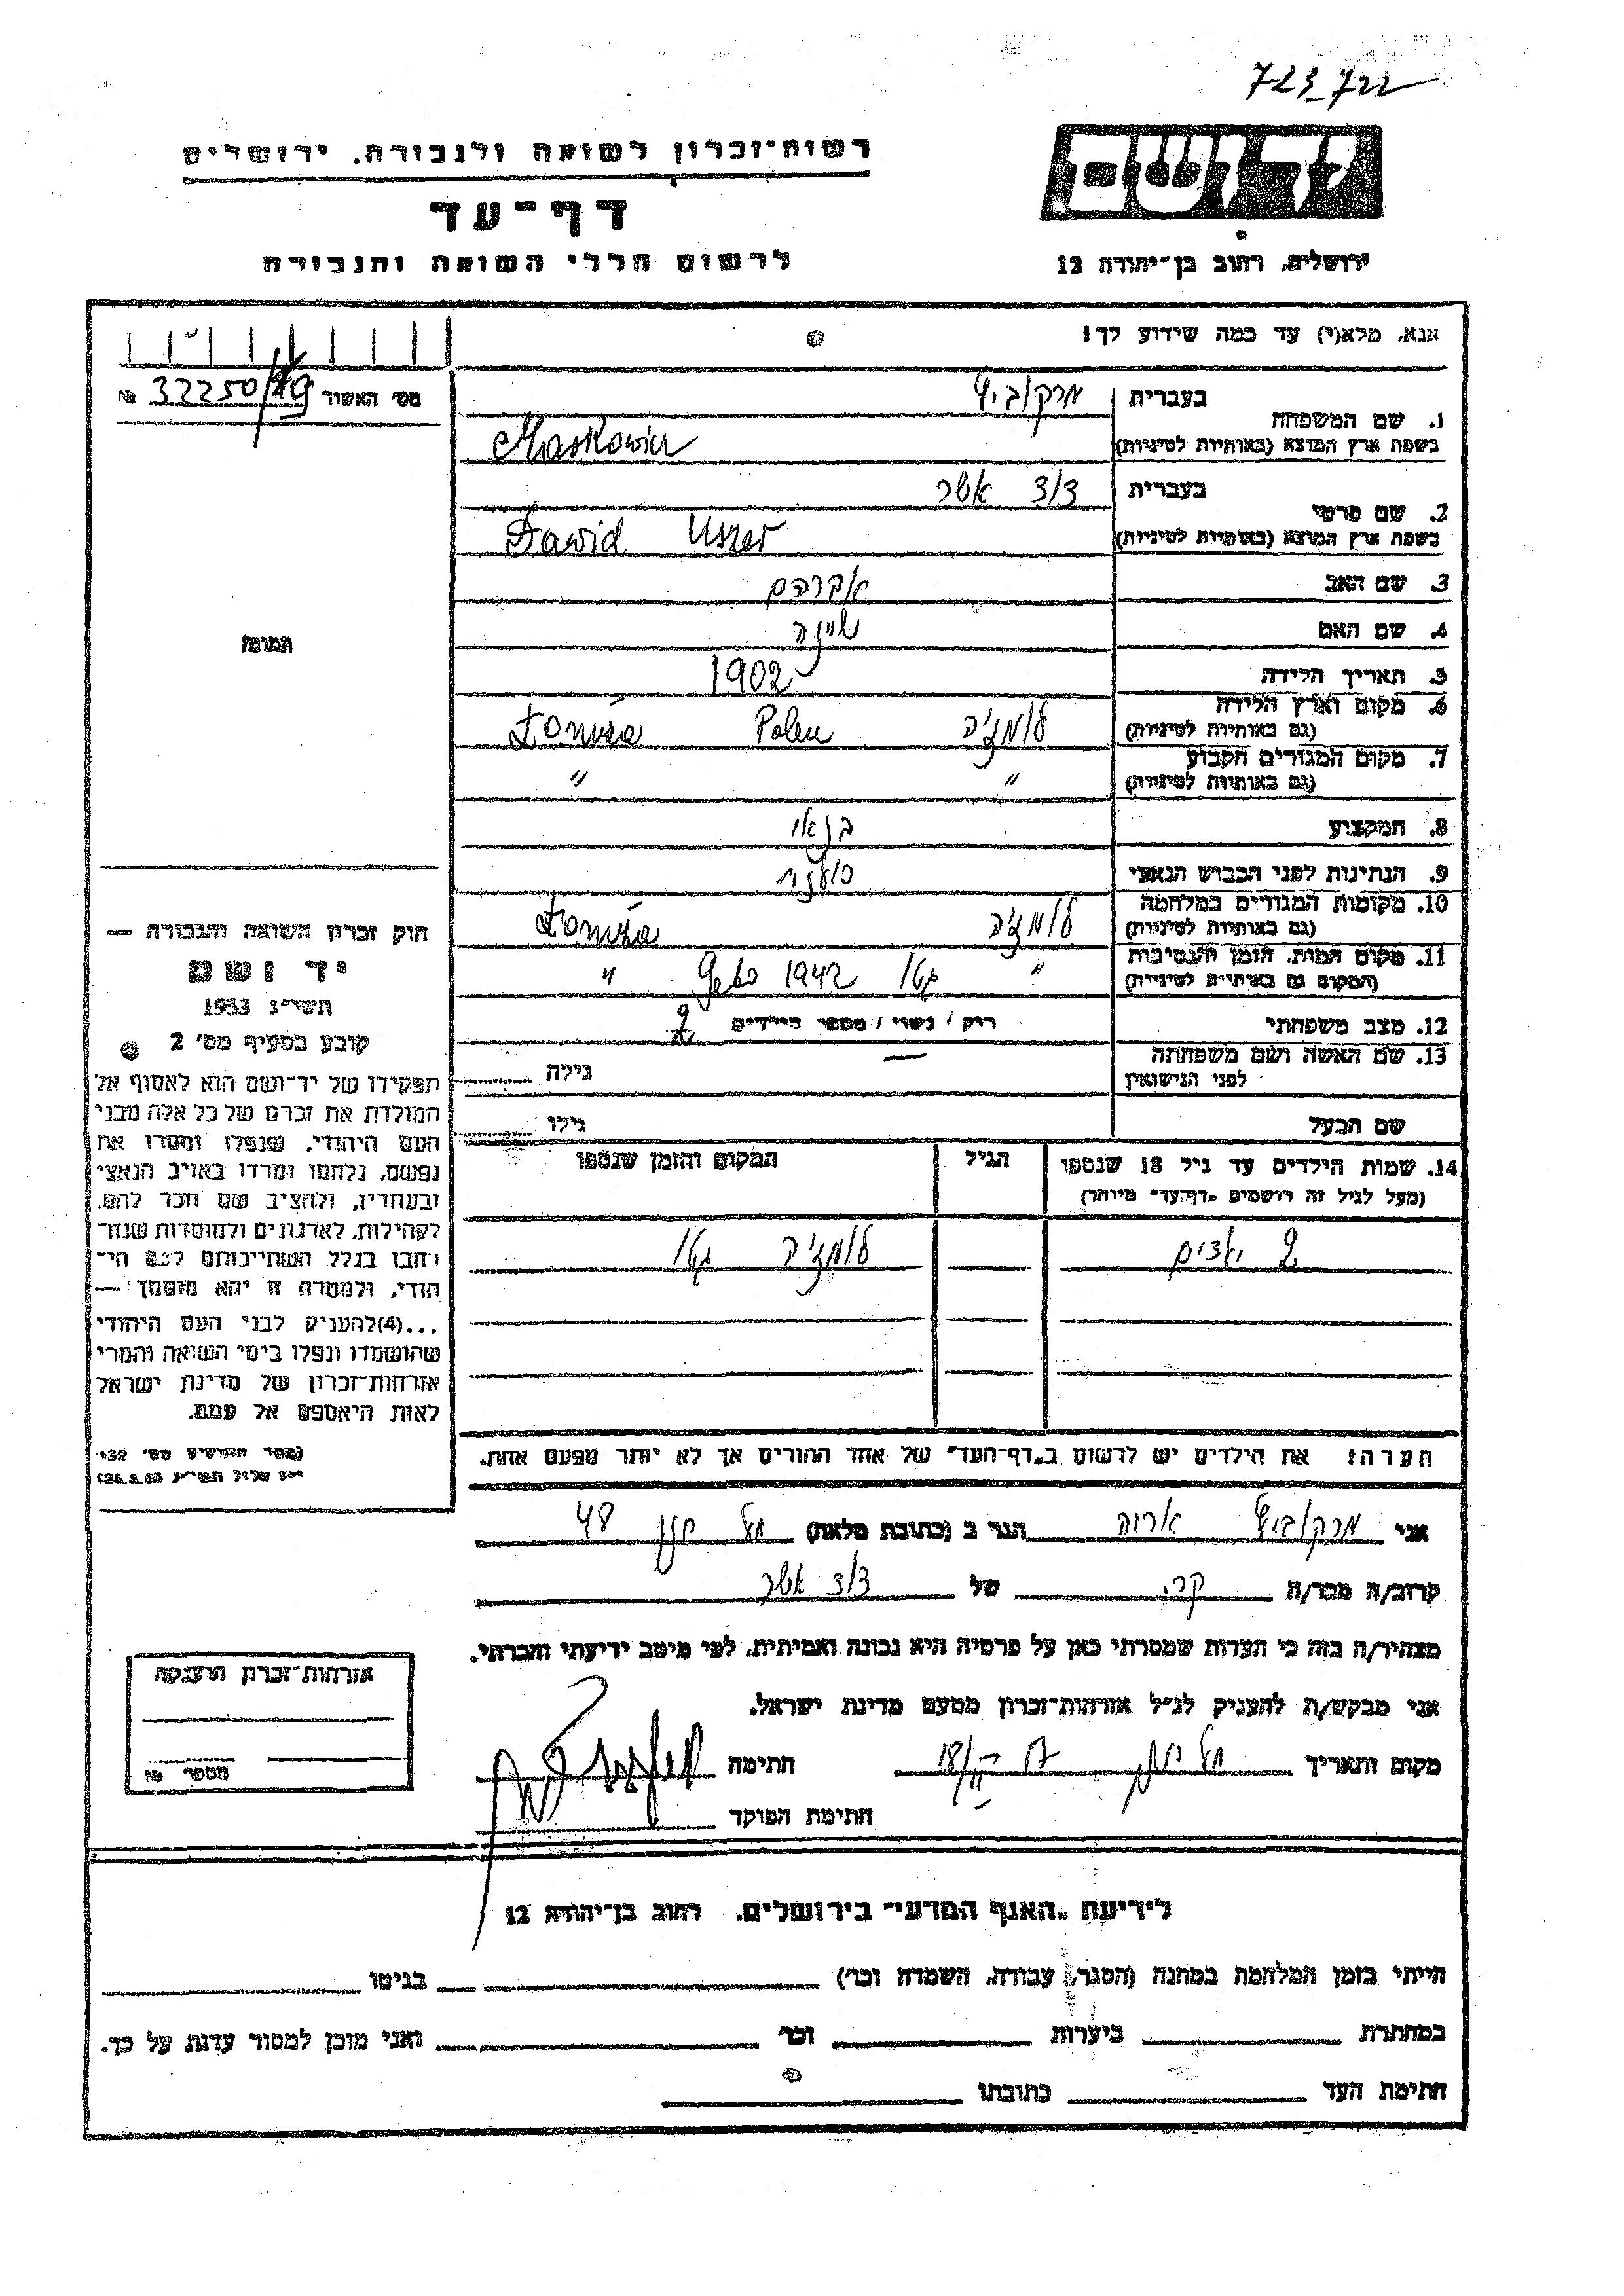 723_722
רשות־זכרון לשואה ולגבורה, ירושלים
דף־עד
לרשום חללי השואה והגבורה
יד ושם
ירושלים, רחוב בן־יהודה 12
אנא, מלא(י) עד כמה שידוע לך!
מס׳ האשור 32250/49 №
1. שם המשפחה
בעברית מרקוביץ
בשפת ארץ המוצא (באותיות לטיניות) Markowicz
2. שם פרטי
בעברית דוד אשר
בשפת ארץ המוצא (באותיות לטיניות) Dawid Uszer
3. שם האב אברהם
4. שם האם שיינה
5. תאריך הלידה 1902
6. מקום וארץ הלידה לומז'ה Polen Łomża
(גם באותיות לטיניות)
7. מקום המגורים הקבוע " "
(גם באותיות לטיניות)
8. המקצוע בנאי
9. הנתינות לפני הכבוש הנאצי פולנית
10. מקומות המגורים במלחמה לומז'ה Łomża
(גם באותיות לטיניות)
11. מקום המות, הזמן והנסיבות " גטו 1942 Getto "
(המקום גם באותיות לטיניות)
12. מצב משפחתי רווק / נשוי / מספר הילדים 2
13. שם האשה ושם משפחתה — גילה
לפני הנישואין
שם הבעל גילו
14. שמות הילדים עד גיל 18 שנספו הגיל המקום והזמן שנספו
(מעל לגיל זה רושמים "דף־עד" מיוחד)
2 ילדים לומז'ה גטו
הערה: את הילדים יש לרשום ב"דף־העד" של אחד ההורים אך לא יותר מפעם אחת.
תמונה
חוק זכרון השואה והגבורה —
יד ושם
תשי״ג 1953
קובע בסעיף מס׳ 2
תפקידו של יד־ושם הוא לאסוף אל
המולדת את זכרם של כל אלה מבני
העם היהודי, שנפלו ומסרו את
נפשם, נלחמו ומרדו באויב הנאצי
ובעוזריו, ולהציב שם וזכר להם,
לקהילות, לארגונים ולמוסדות שנח־
רבו בגלל השתייכותם לעם הי־
הודי, ולמטרה זו יהא מוסמך —
...(4)להעניק לבני העם היהודי
שהושמדו ונפלו בימי השואה והמרי
אזרחות־זכרון של מדינת ישראל
לאות היאספם אל עמם.
(ספר החוקים מס׳ 132
י״ז אלול תשי״ג 28.8.53)
אני מרקוביץ אריה הגר ב (כתובת מלאה) תל חנן 48
קרוב/ה מכר/ה קרוב של דוד אשר
מצהיר/ה בזה כי העדות שמסרתי כאן על פרטיה היא נכונה ואמיתית, לפי מיטב ידיעתי והכרתי.
אני מבקש/ת להעניק לנ״ל אזרחות־זכרון מטעם מדינת ישראל.
מקום ותאריך תל חנן חתימה
חתימת הפוקד
אזרחות־זכרון הוענקה
מספר №
לידיעת "האגף המדעי" בירושלים, רחוב בן־יהודה 12
הייתי בזמן המלחמה במחנה (הסגר, עבודה, השמדה וכו׳) בגיטו
במחתרת ביערות וכו׳ ואני מוכן למסור עדות על כך.
חתימת העד כתובתו